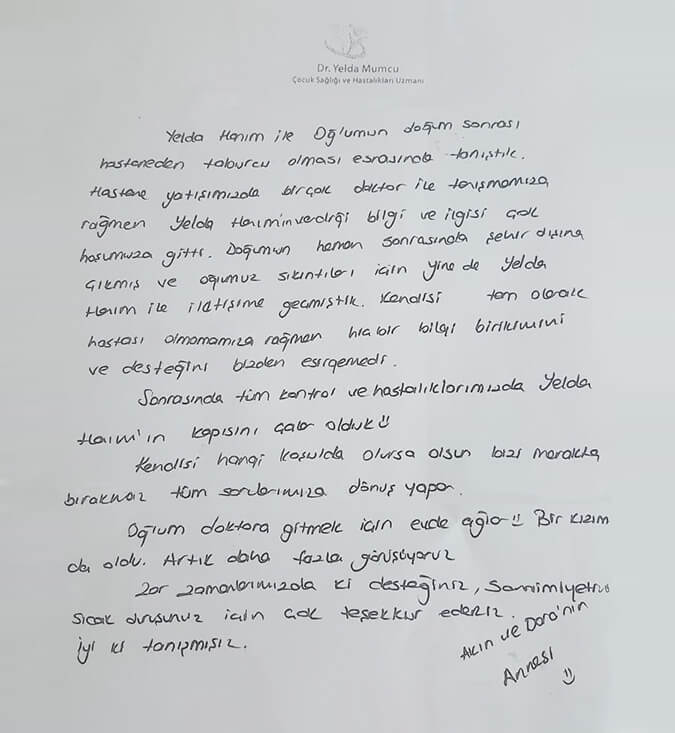 Dr. Yelda Mumcu
Çocuk Sağlığı ve Hastalıkları Uzmanı
Yelda Hanım ile Oğlumun doğum sonrası
hastaneden taburcu olması esrasında tanıştık.
Hastane yatışımızda birçok doktor ile tanışmamıza
rağmen Yelda Hanım'ın verdiği bilgi ve ilgisi çok
hoşumuza gitti. Doğumun hemen sonrasında şehir dışına
çıkmış ve oğlumuz sıkıntıları için yine de Yelda
Hanım ile iletişime geçmiştik. Kendisi tam olarak
hastası olmamamıza rağmen hiç bir bilgi birikimini
ve desteğini bizden esirgemedi.
Sonrasında tüm kontrol ve hastalıklarımızda Yelda
Hanım'ın kapısını çalar olduk
Kendisi hangi koşulda olursa olsun bizi merakta
bırakmaz tüm sorularımıza dönüş yapar.
Oğlum doktora gitmek için evde ağlar Bir kızım
da oldu. Artık daha fazla görüşüyoruz
Zor zamanlarımızda ki desteğiniz, Samimiyetiniz
sıcak duruşunuz için çok teşekkür ederiz.
İyi ki tanışmışız.
Akın ve Dora'nın
Annesi